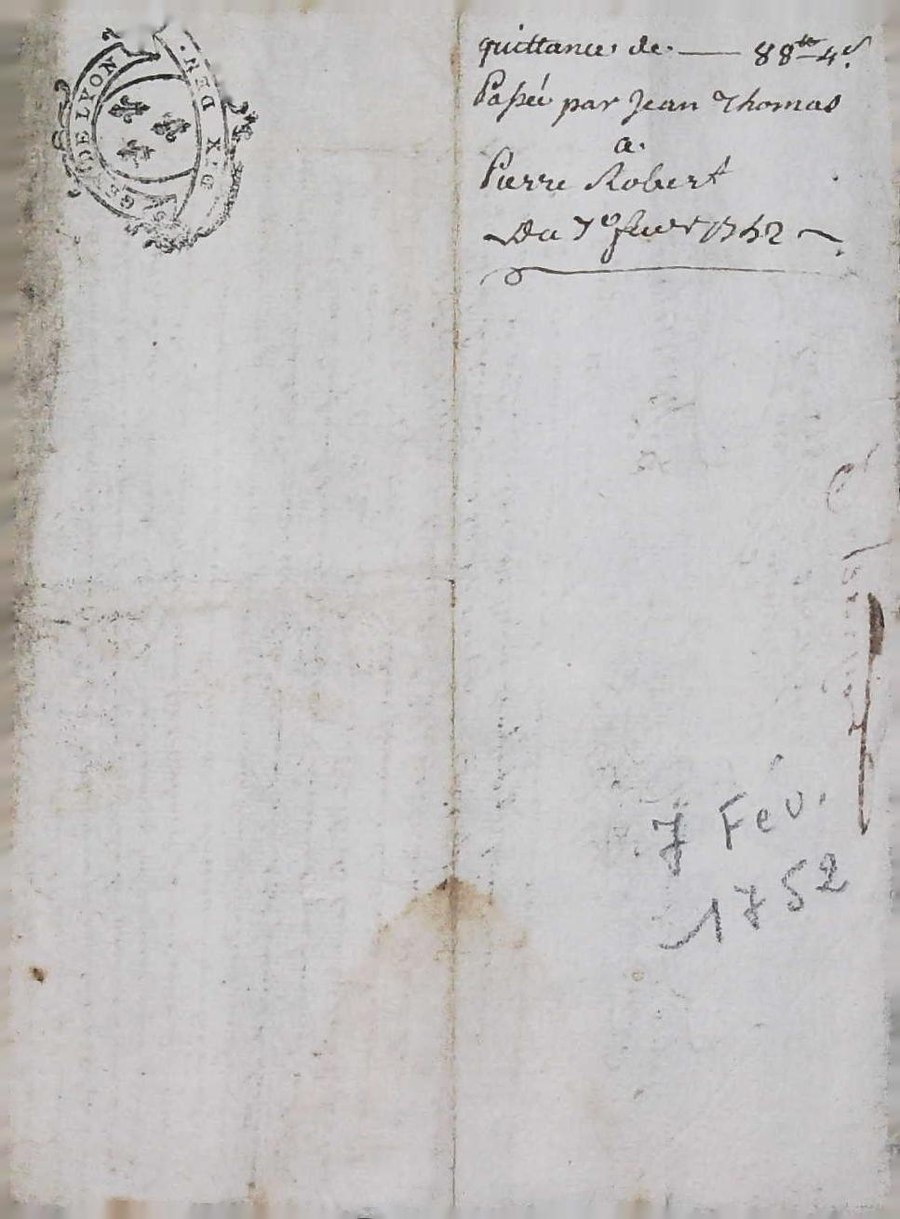 GEN. DE LYON
DER. X. G
quittance de. — 88tt 4s.
Passée par Jean Thomas
a.
Pierre Robert
Du 7e fevr 1752
7 Fév.
1752